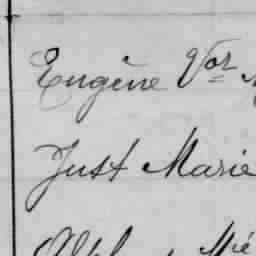 Eugène Vor
Just Marie